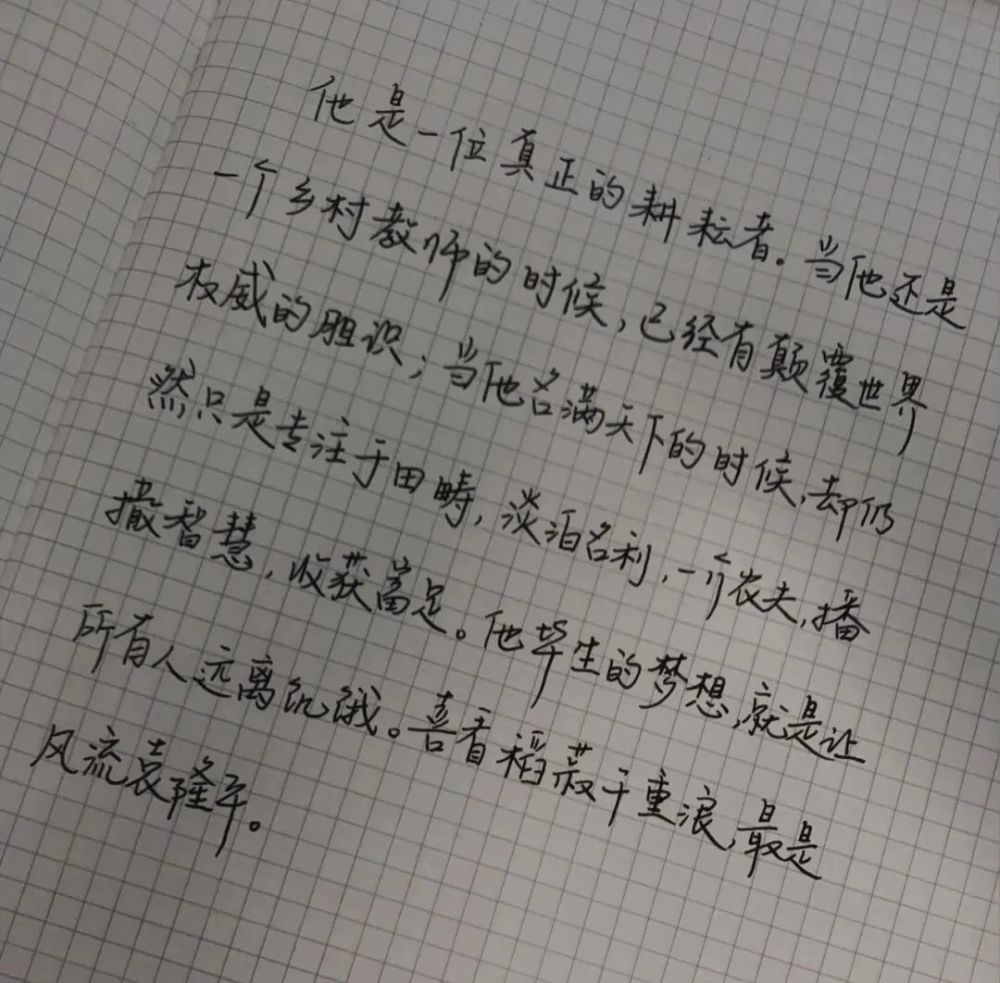 他是一位真正的耕耘者。当他还是
一个乡村教师的时候,已经有颠覆世界
权威的胆识;当他名满天下的时候,却仍
然只是专注于田畴,淡泊名利,一个农夫,播
撒智慧,收获富足。他毕生的梦想,就是让
所有人远离饥饿。喜看稻菽千重浪,最是
风流袁隆平。